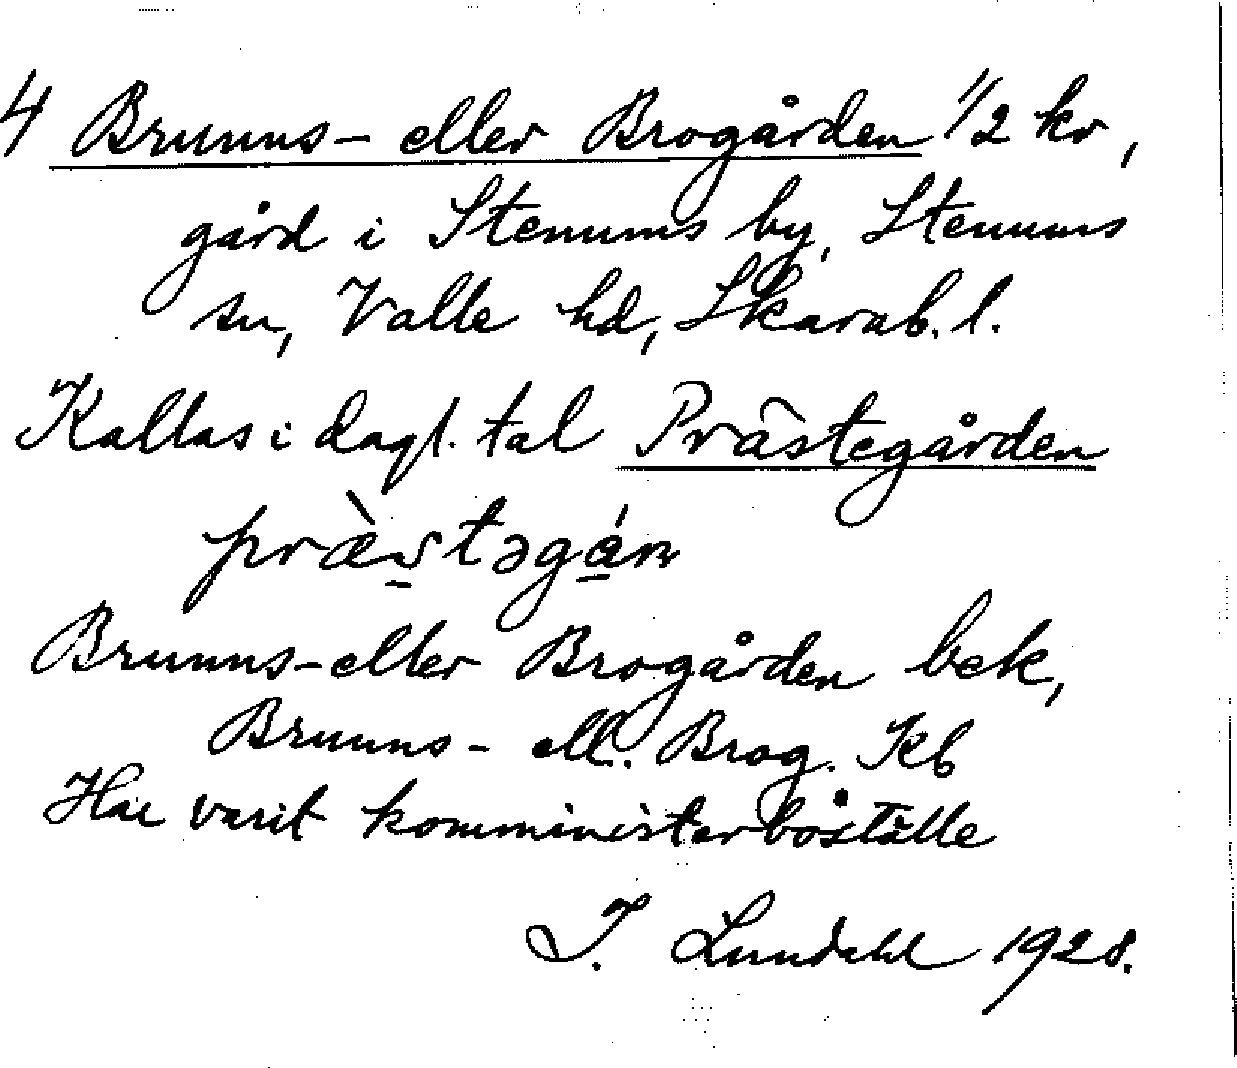 4 Brunns- eller Brogården 1/2 kr,
gård i Stenums by, Stenums
sn, Valle hd, Skarab. l.
Kallas i dagl. tal Prästegården
præ̀s̠təgá̠n
Brunns- eller Brogården bek,
Brunns- ell. Brog. Kb
Har varit komministerboställe
I. Lundahl 1928.